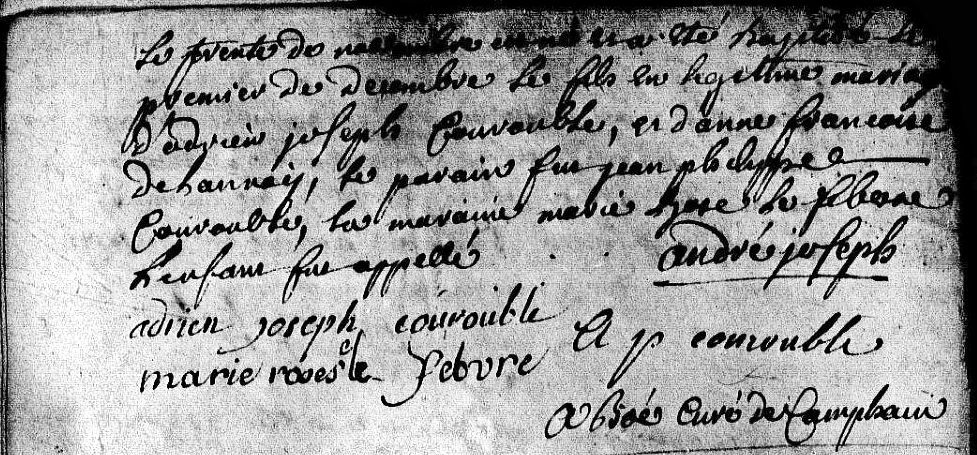 Le trente de novembre est né et a été baptisé le
premier de decembre le fils en legitime mariage
d'adrien joseph Courouble, et d'anne francoise
dehannoy, le parain fut jean philippe
Courouble, la maraine marie rose le febvre
L'enfant fut appellé andré joseph
adrien joseph courouble
J p courouble
marie roses le febvre
curé de Camphain